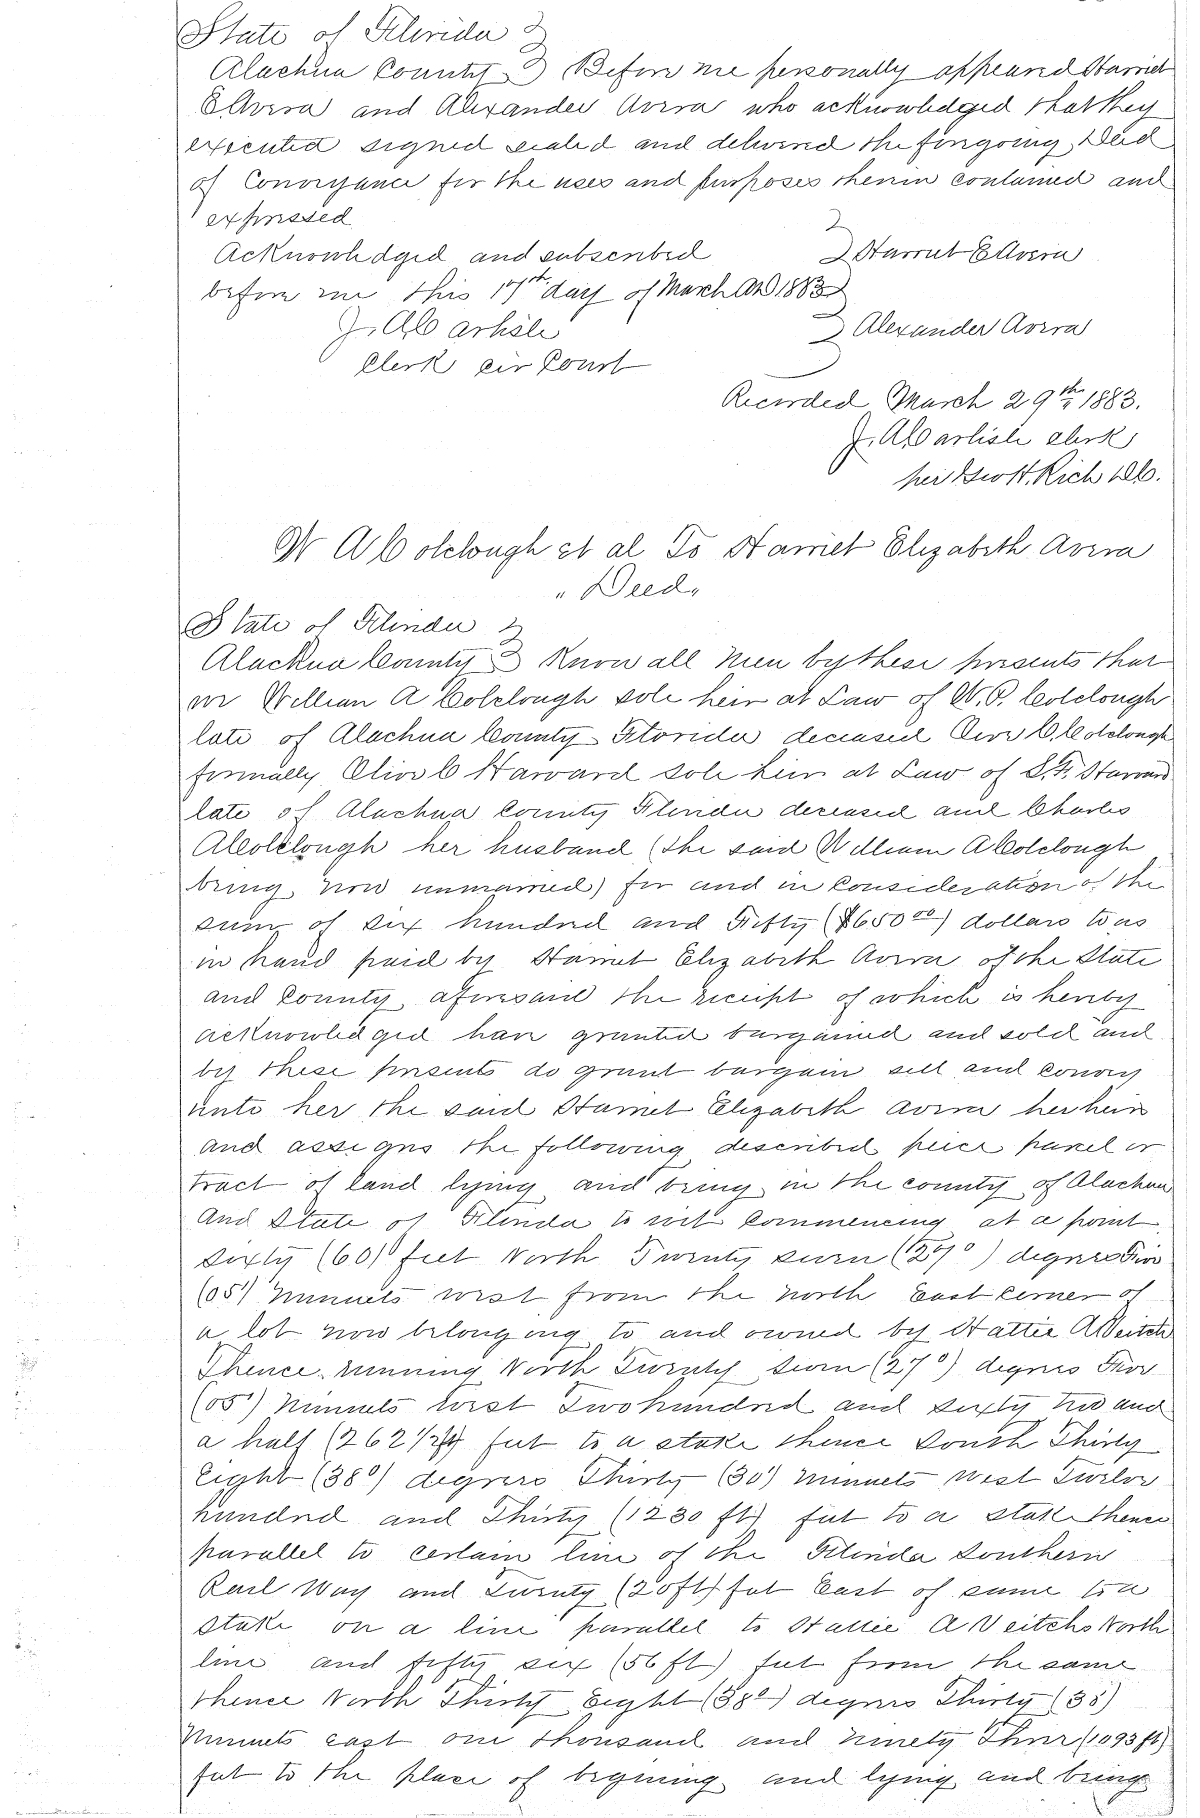 State of Florida
Alachua County Before me personally appeared Harriet
E Avera and Alexander Avera who acknowledged that they
executed signed sealed and delivered the foregoing Deed
of Conveyance for the uses and purposes therein contained and
expressed
Acknowledged and subscribed Harriet E Avera
before me this 17th day of March AD 1883
J. A Carlisle Alexander Avera
Clerk cir Court
Recorded March 29th 1883.
J. A Carlisle clerk
per Geo H. Rich DC.
W A Colclough et al To Harriet Elizabeth Avera
"Deed"
State of Florida
Alachua County Know all Men by these presents that
we William A Colclough sole heir at Law of W. P. Colclough
late of Alachua County Florida deceased C Colclough
formally Olive C Harvard sole heir at Law of S. F. Harvard
late of Alachua County Florida deceased and Charles
A Colclough her husband (the said William A Colclough
being now unmarried) for and in Consideration of the
sum of six hundred and Fifty ($650 00) dollars to us
in hand paid by Harriet Elizabeth Avera of the State
and County aforesaid the receipt of which is hereby
acknowledged have granted bargained and sold and
by these presents do grant bargain sell and convey
unto her the said Harriet Elizabeth Avera her heirs
and assigns the following described peice parcel or
tract of land lying and being in the county of Alachua
And State of Florida to wit Commencing at a point
sixty (60) feet North Twenty seven (27°) degrees Five
(05') Minuets west from the North East Corner of
a lot now belonging to and owned by Hattie A Veitch
Thence running North Twenty seven (27°) degrees Five
(05') Minuets West Two hundred and sixty two and
a half (262 1/2 ft) feet to a stake thence South Thirty
Eight (38°) degrees Thirty (30') Minuets West Twelve
hundred and Thirty (1230 ft) feet to a stake thence
parallel to certain line of the Florida Southern
Rail Way and Twenty (20 ft) feet East of same to a
stake on a line parallel to Hattie A Veitchs North
line and fifty six (56 ft) feet from the same
thence North Thirty Eight (38°) degrees Thirty (30)
Minuets east one thousand and Ninety Three (1093 ft)
feet to the place of begining and lying and being